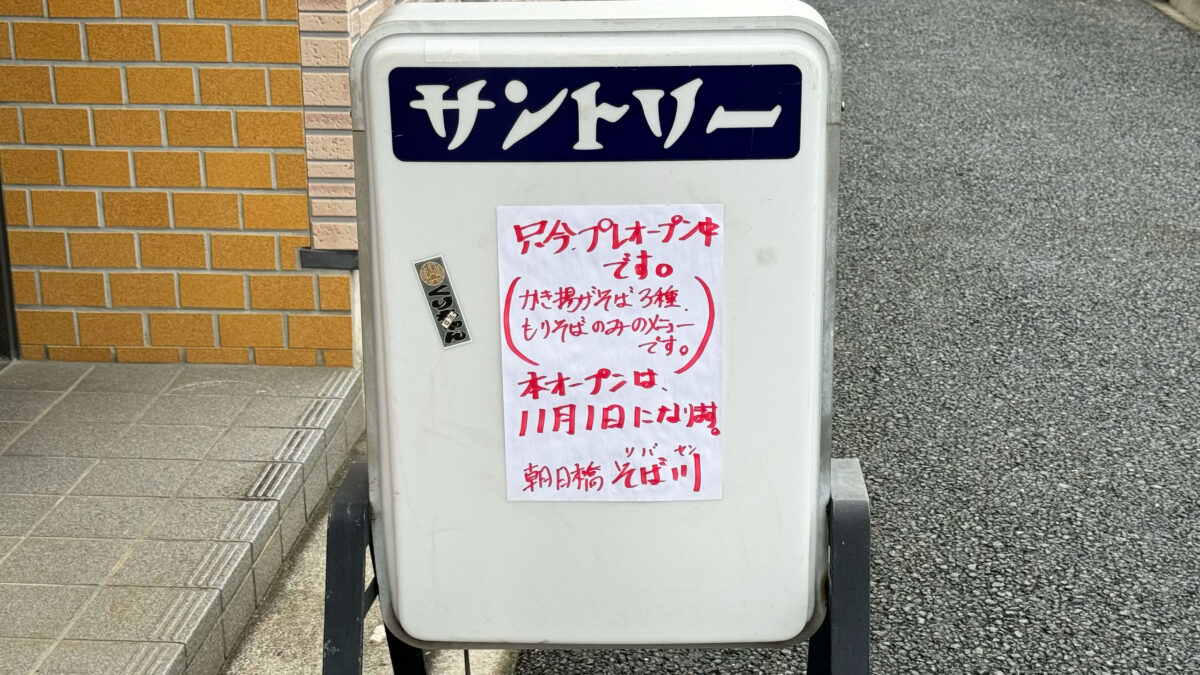 サントリー
只今、プレオープン中
です。
(かき揚げそば3種、
もりそばのみのメニュー
です。)
本オープンは、
11月1日になります。
リバセン
朝日橋 そば川